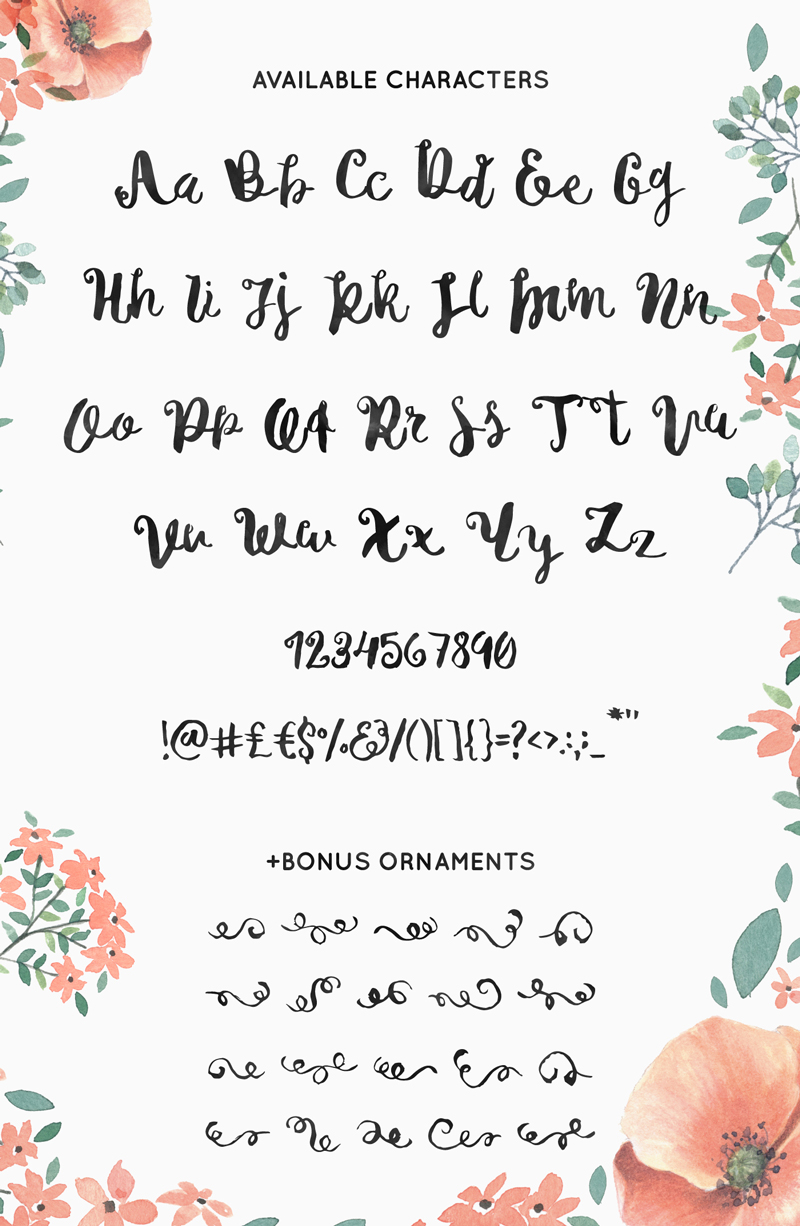 AVAILABLE CHARACTERS
Aa Bb Cc Dd Ee Gg
Hh Ii Jj Kk Ll Mm Nn
Oo Pp Qq Rr Ss Tt Uu
Vv Ww Xx Yy Zz
1234567890
!@#£€$%&/()[]{}=?<>.:,;_*'"
+BONUS ORNAMENTS